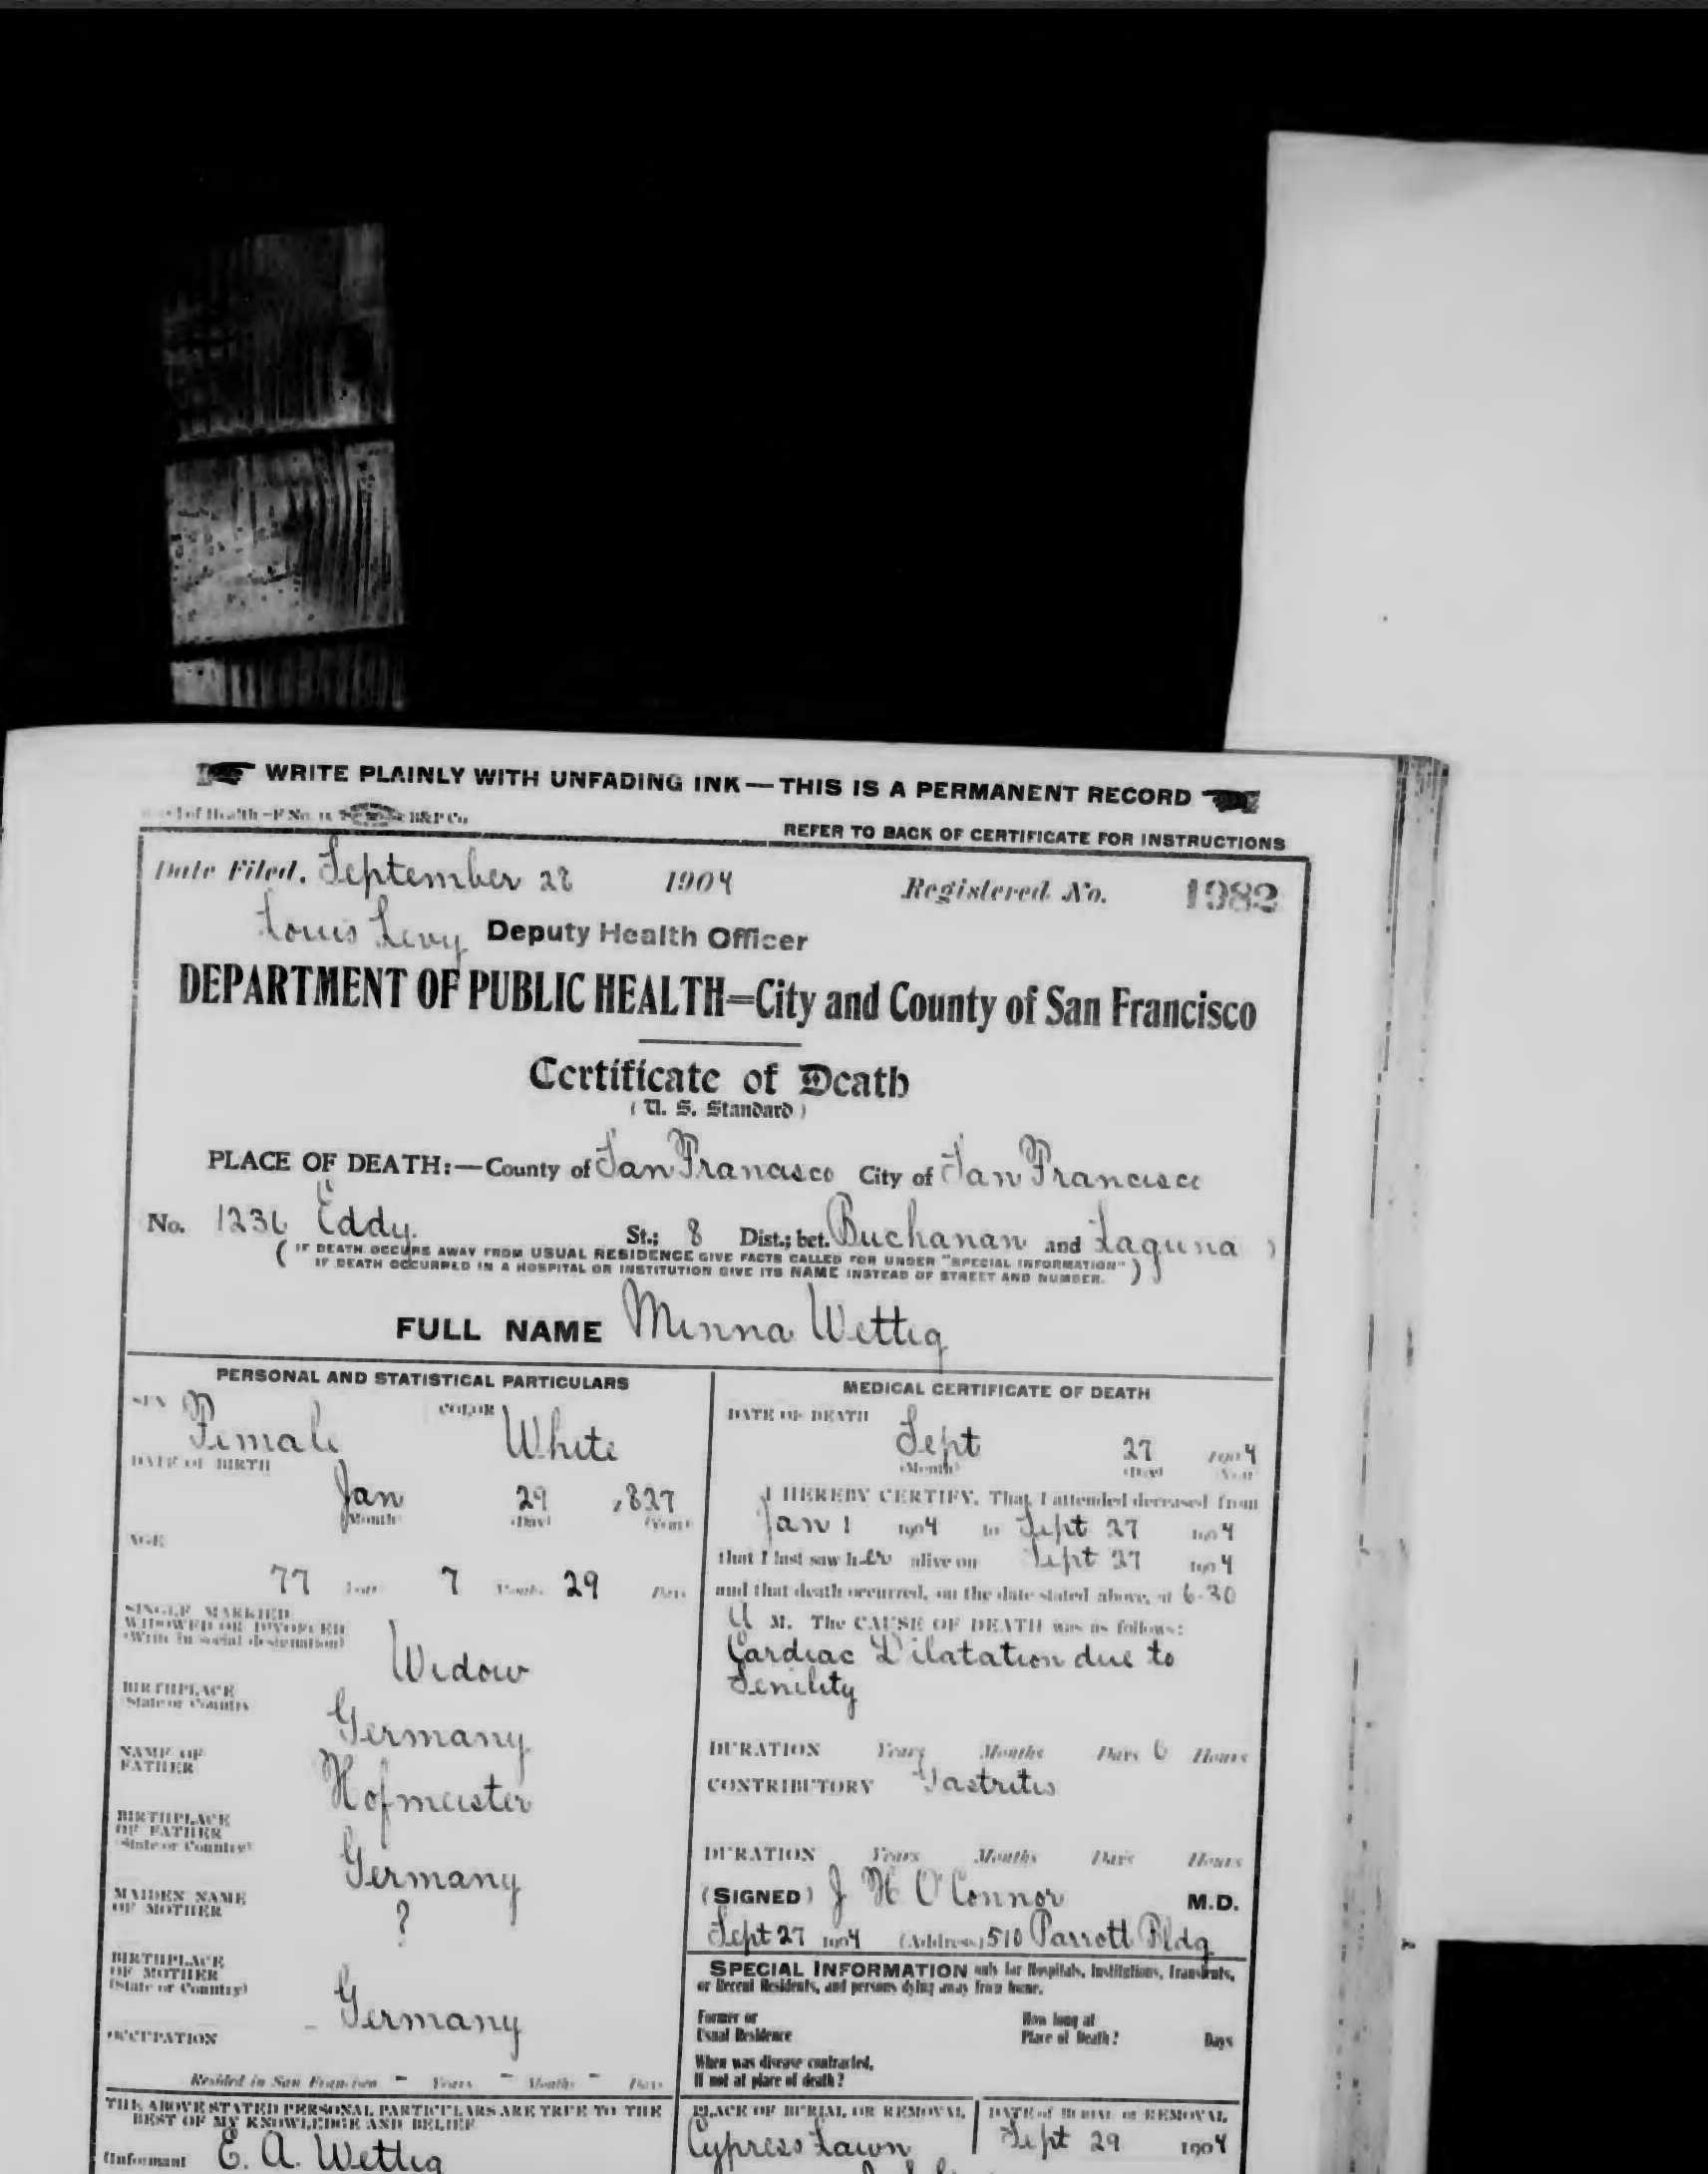 WRITE PLAINLY WITH UNFADING INK—THIS IS A PERMANENT RECORD
of Health-F No. B&P Co
REFER TO BACK OF CERTIFICATE FOR INSTRUCTIONS
Date Filed, September 28 1904 Registered No. 1982
Louis Levy Deputy Health Officer
DEPARTMENT OF PUBLIC HEALTH=City and County of San Francisco
Certificate of Death
(U. S. Standard)
PLACE OF DEATH:—County of San Francisco City of San Francisco
No. 1236 Eddy St.; 8 Dist.; bet. Buchanan and Laguna )
( IF DEATH OCCURS AWAY FROM USUAL RESIDENCE GIVE FACTS CALLED FOR UNDER "SPECIAL INFORMATION"
IF DEATH OCCURRED IN A HOSPITAL OR INSTITUTION GIVE ITS NAME INSTEAD OF STREET AND NUMBER. )
FULL NAME Minna Wettig
PERSONAL AND STATISTICAL PARTICULARS
SEX Female COLOR White
DATE OF BIRTH
Jan 29 1827
(Month) (Day) (Year)
AGE
77 Years 7 Months 29 Days
SINGLE, MARRIED
WIDOWED OR DIVORCED
(Write in social designation)
Widow
BIRTHPLACE
(State or Country)
Germany
NAME OF
FATHER
Hofmeister
BIRTHPLACE
OF FATHER
(State or Country)
Germany
MAIDEN NAME
OF MOTHER
?
BIRTHPLACE
OF MOTHER
(State or Country)
Germany
OCCUPATION
Resided in San Francisco - Years - Months - Days
THE ABOVE STATED PERSONAL PARTICULARS ARE TRUE TO THE
BEST OF MY KNOWLEDGE AND BELIEF
(Informant E. A. Wettig
MEDICAL CERTIFICATE OF DEATH
DATE OF DEATH
Sept 27 1904
(Month) (Day) (Year)
I HEREBY CERTIFY, That I attended deceased from
Jan 1 1904 to Sept 27 1904
that I last saw her alive on Sept 27 1904
and that death occurred, on the date stated above, at 6-30
A M. The CAUSE OF DEATH was as follows:
Cardiac Dilatation due to
Senility
DURATION Years Months Days 6 Hours
CONTRIBUTORY Gastritis
DURATION Years Months Days Hours
(SIGNED) J H O'Connor M.D.
Sept 27 1904 (Address) 510 Parrott Bldg
SPECIAL INFORMATION only for Hospitals, Institutions, Transients,
or Recent Residents, and persons dying away from home.
Former or
Usual Residence
How long at
Place of Death? Days
When was disease contracted,
If not at place of death?
PLACE OF BURIAL OR REMOVAL
Cypress Lawn
DATE of BURIAL or REMOVAL
Sept 29 1904